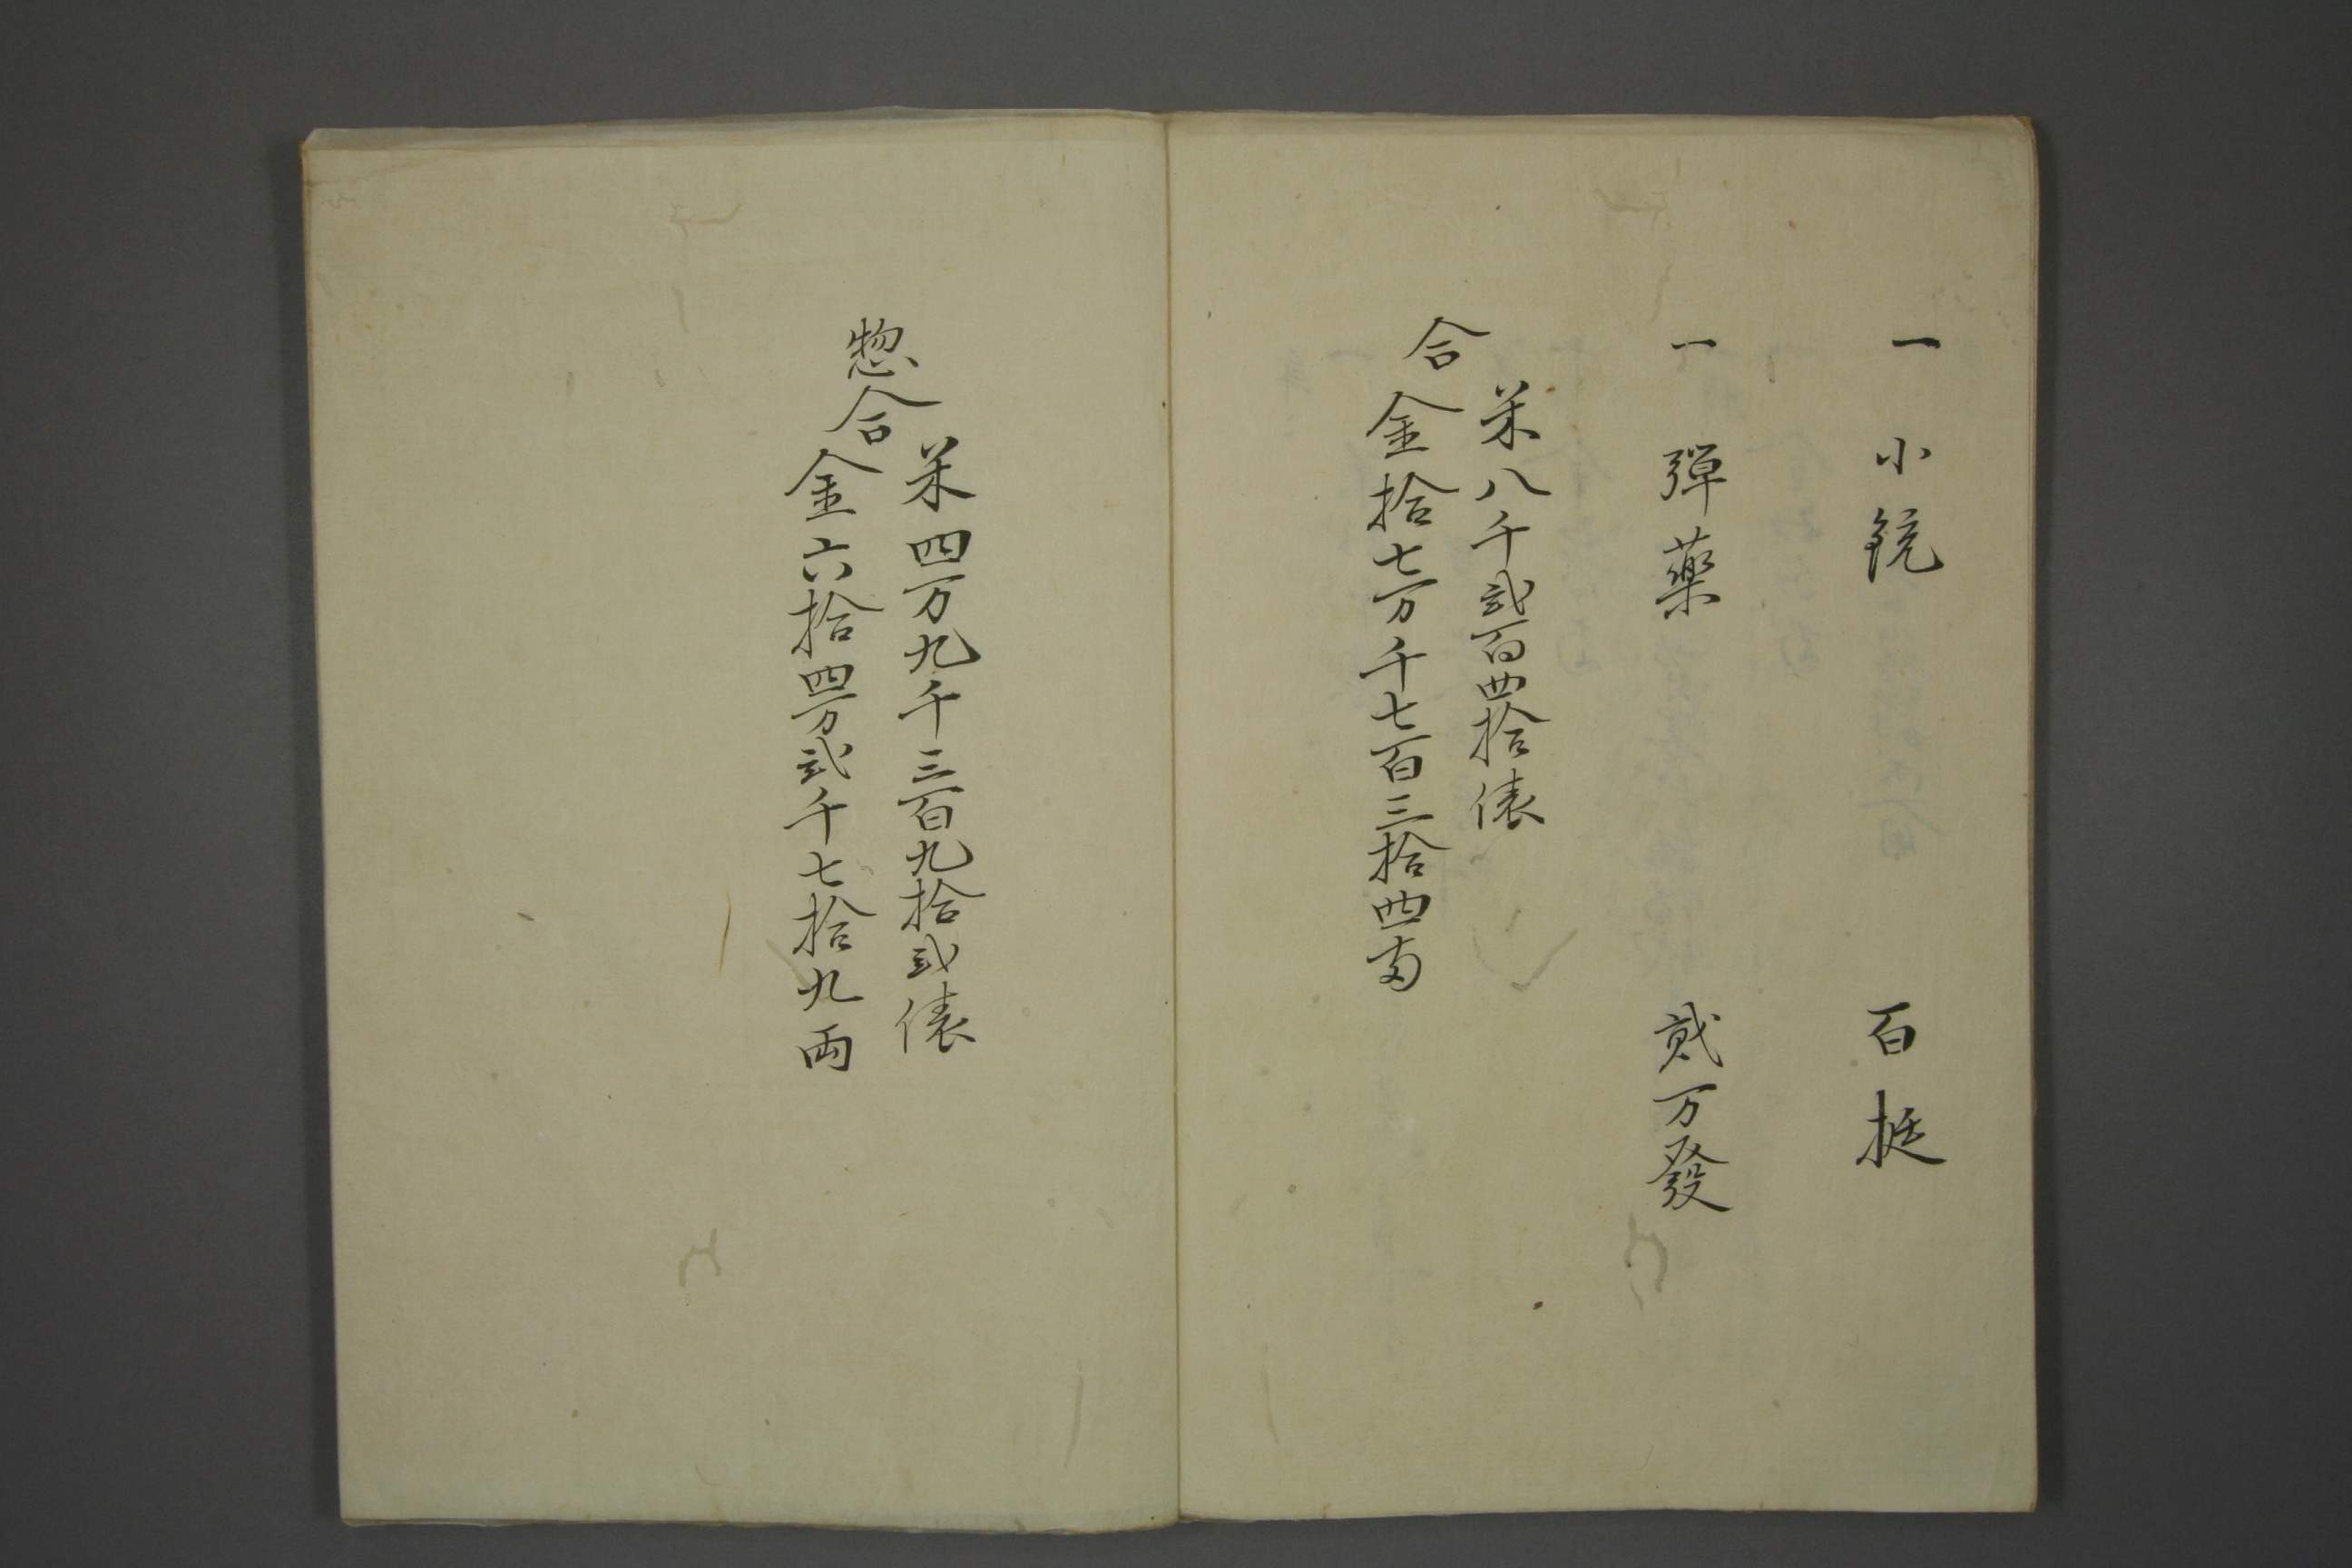 一 小銃 百挺
一 彈藥 貮万發
合
米八千弐百四拾俵
金拾七万千七百三拾四両
惣合
米四万九千三百九拾弐俵
金六拾四万弐千七拾九両